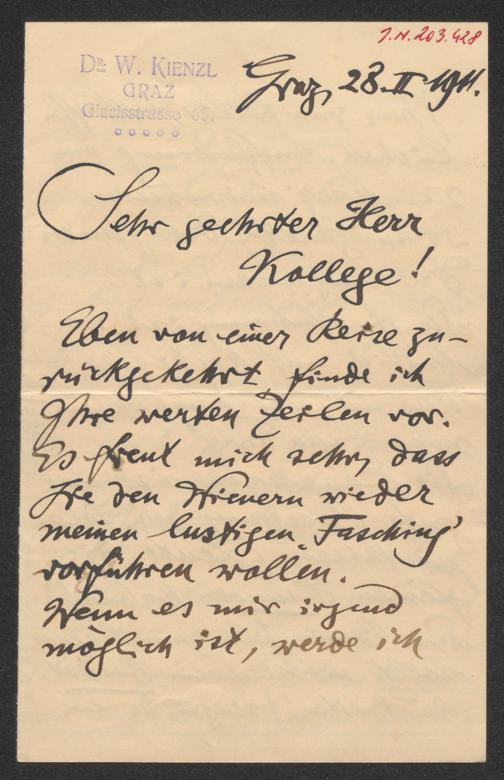 J.N. 203.428
DR. W. KIENZL
GRAZ
Glacisstrasse 65.
Graz, 28. II 1911.
Sehr geehrter Herr
Kollege!
Eben von einer Reise zu-
rückgekehrt, finde ich
Ihre werten Zeilen vor.
Es freut mich sehr, dass
Sie den Wienern wieder
meinen lustigen „Fasching"
vorführen wollen.
Wenn es mir irgend
möglich ist, werde ich